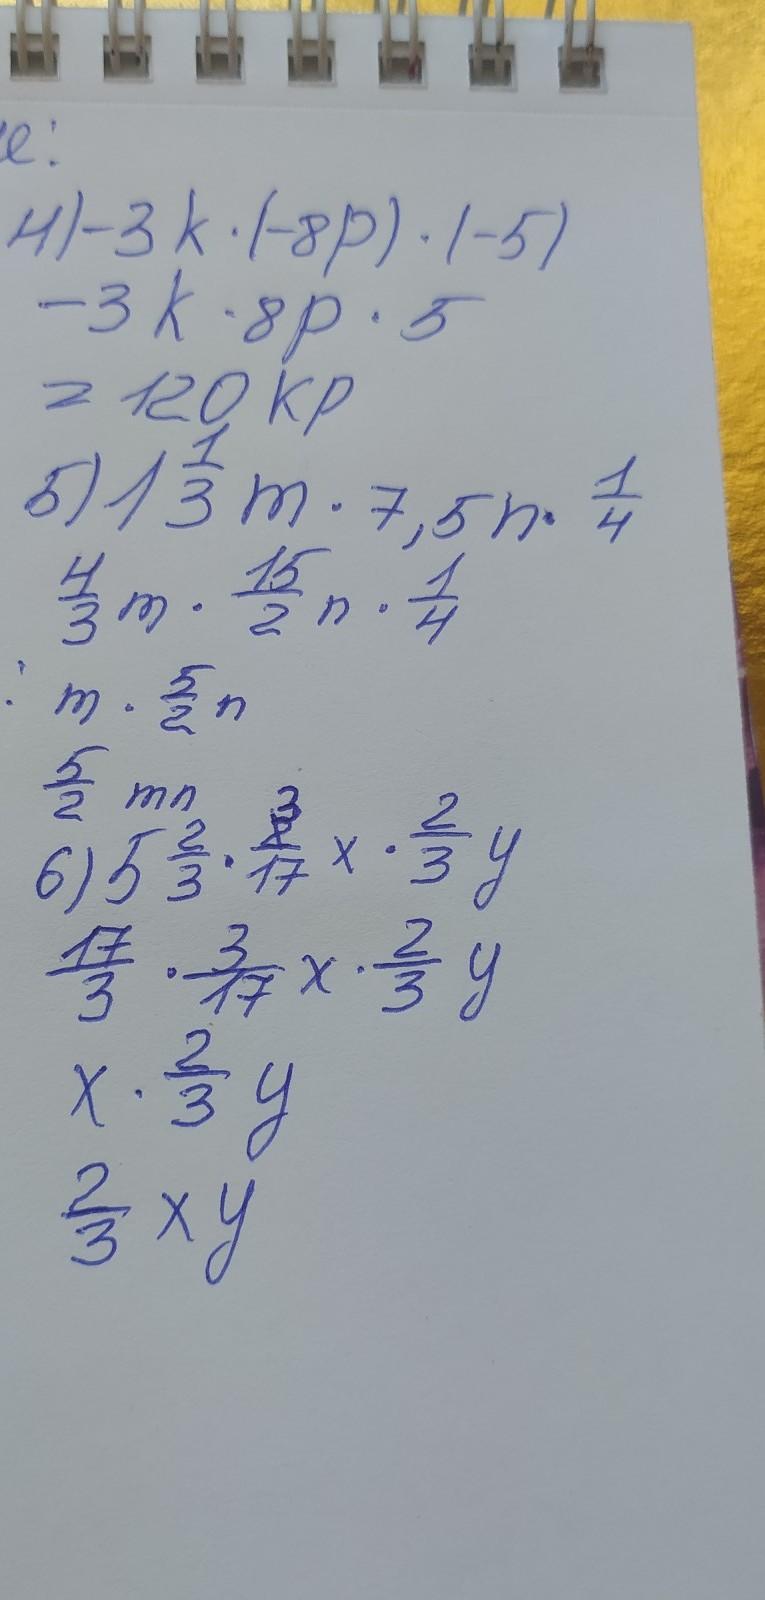 е:
4) -3k · (-8p) · (-5)
-3k · 8p · 5
= 120kp
5) 1 1/3 m · 7,5n · 1/4
4/3 m · 15/2 n · 1/4
m · 5/2 n
5/2 mn
6) 5 2/3 · 3/17 x · 2/3 y
17/3 · 3/17 x · 2/3 y
x · 2/3 y
2/3 xy